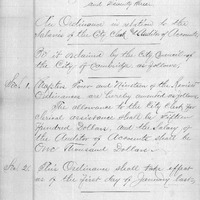 and Seventy three
An Ordinance in relation to the
Salaries of the City Clerk & Auditor of Accounts
Be it ordained by the City Council of
the City of Cambridge as follows;
Sec. 1. Chapters Four and Nineteen of the Revised
Ordinances are hereby amended as follows
The allowance to the City Clerk for
Clerical assistance shall be Fifteen
Hundred Dollars. and the Salary of
the Auditor of Accounts shall be
One Thousand Dollars.
Sec. 2. This Ordinance shall take effect
as of the first day of January last.